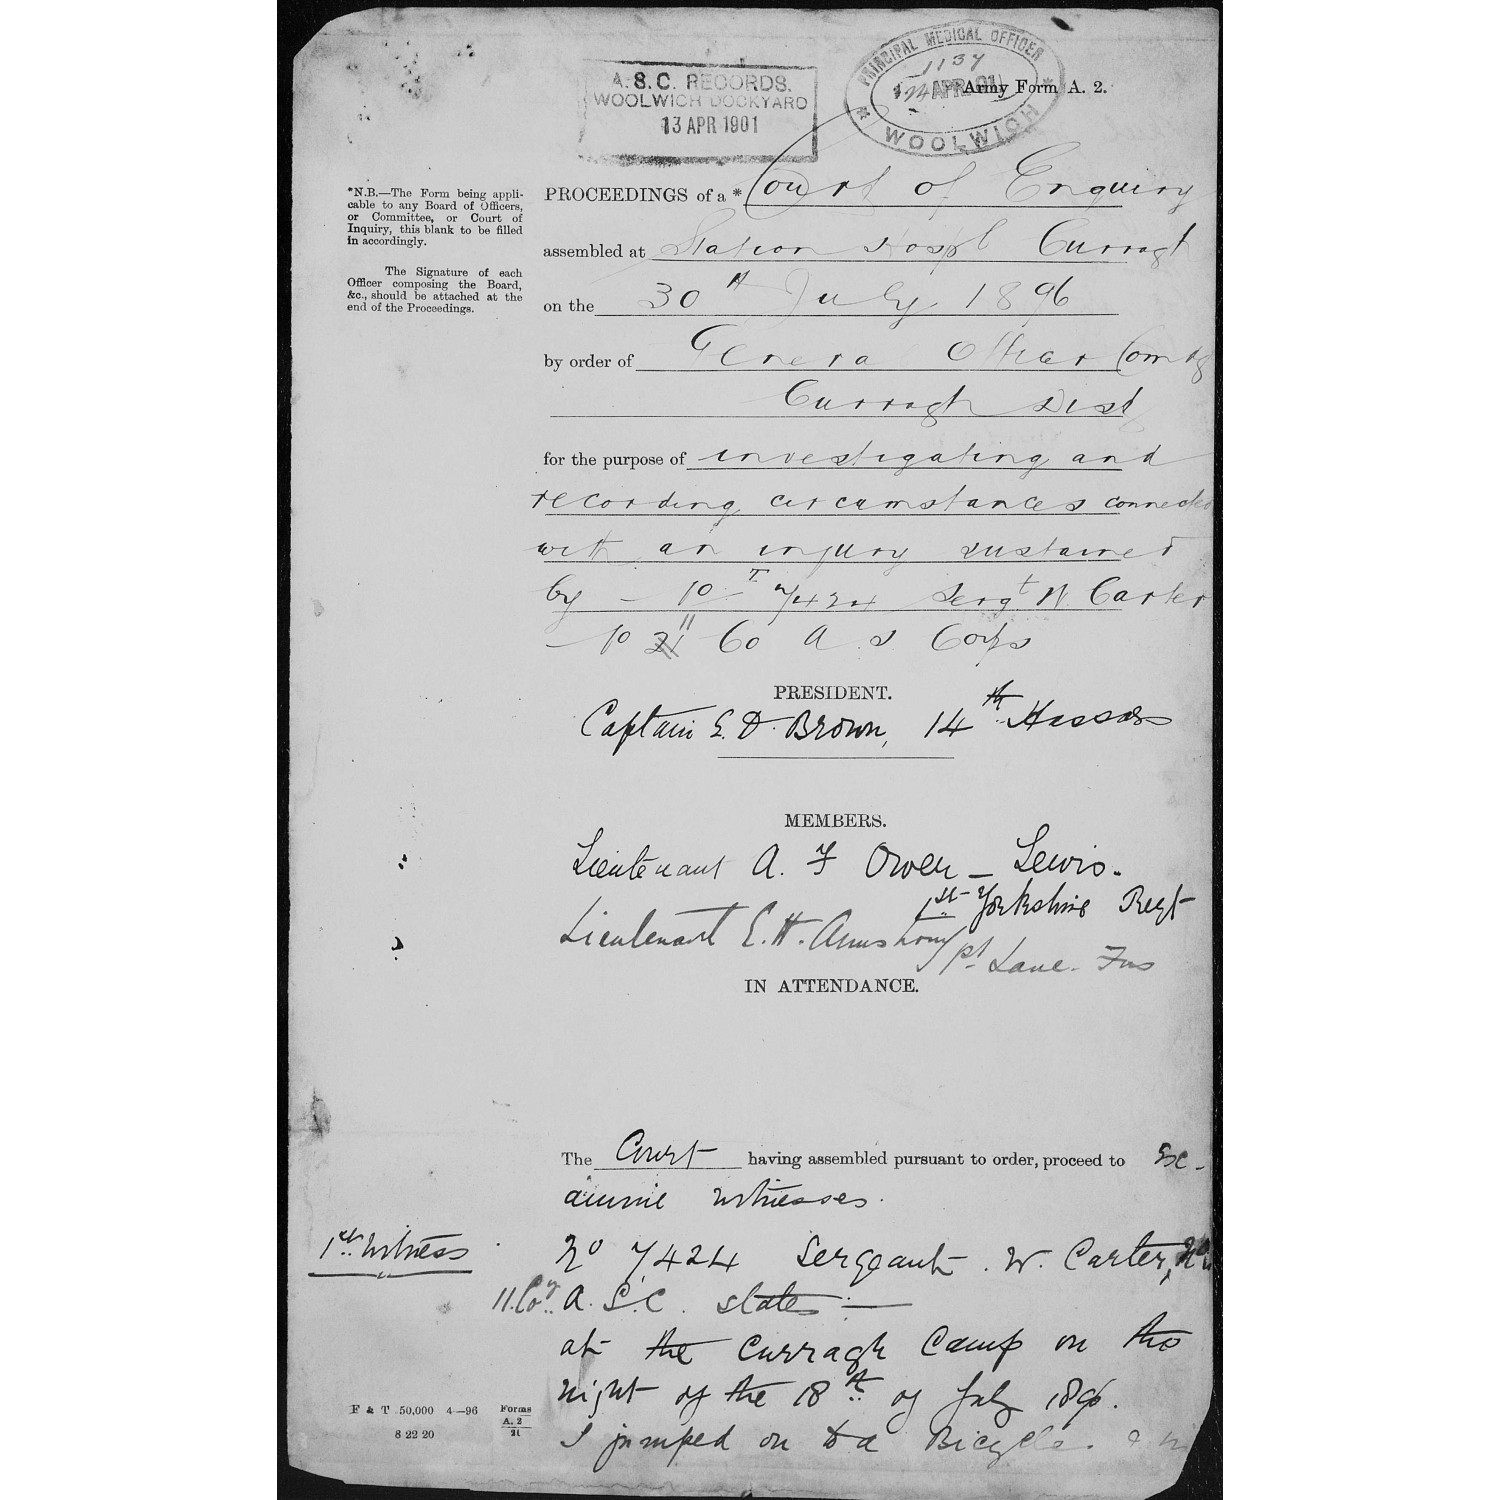 A.S.C. RECORDS.
WOOLWICH DOCKYARD
13 APR 1901
PRINCIPAL MEDICAL OFFICER
1137
APR. 01
WOOLWICH
Army Form A. 2.
*N.B.—The Form being appli-
cable to any Board of Officers,
or Committee, or Court of
Inquiry, this blank to be filled
in accordingly.
The Signature of each
Officer composing the Board,
&c., should be attached at the
end of the Proceedings.
PROCEEDINGS of a * Court of Enquiry
assembled at Station Hospl Curragh
on the 30th July 1896
by order of General Officer Comdg
Curragh Dist
for the purpose of investigating and
recording circumstances connected
with an injury sustained
by - No 7424 Sergt W. Carter
- No 11 Co A. S Corps
PRESIDENT.
Captain E. D. Brown, 14th Hussars
MEMBERS.
Lieutenant A. F Owen-Lewis.
1st Yorkshire Regt
Lieutenant E. H. Armstrong
Lanc. Fus
IN ATTENDANCE.
The Court having assembled pursuant to order, proceed to Ex-
amine witnesses.
1st Witness
No 7424 Sergeant W. Carter, No
11. Coy A. S. C. states:—
at the Curragh Camp on the
night of the 18th of July 1896.
I jumped on to a Bicycle.
F & T 50,000 4—96
8 22 20
Forms
A. 2
21